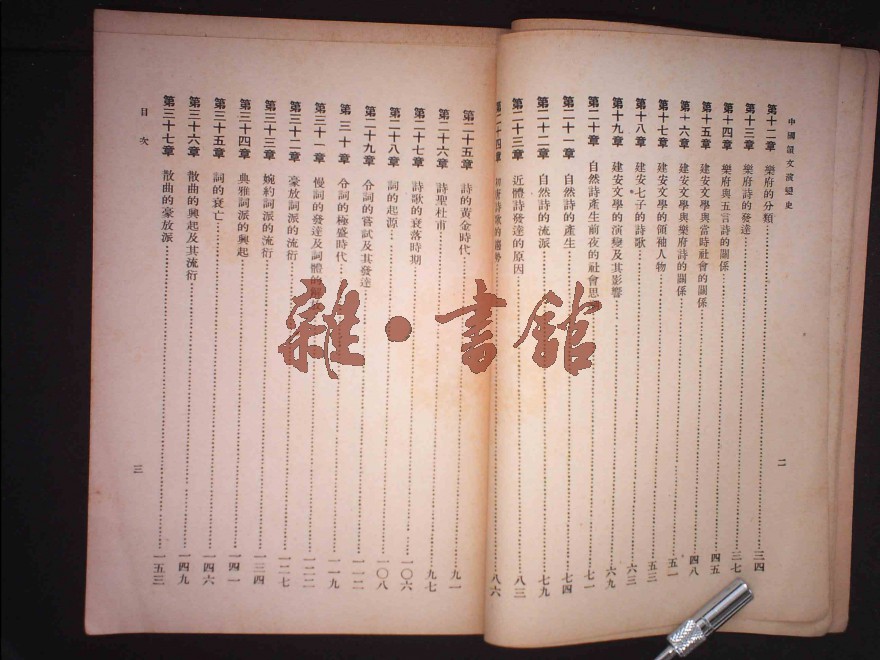 中國韻文演變史
第十二章 樂府的分類……三四
第十三章 樂府詩的發達……三七
第十四章 樂府與五言詩的關係……四五
第十五章 建安文學與當時社會的關係……四八
第十六章 建安文學與樂府詩的關係……五一
第十七章 建安文學的領袖人物……五三
第十八章 建安七子的詩歌……六三
第十九章 建安文學的演變及其影響……六九
第二十章 自然詩產生前夜的社會思……七一
第二十一章 自然詩的產生……七四
第二十二章 自然詩的流派……七九
第二十三章 近體詩發達的原因……八三
第二十四章 初唐詩歌的趨勢……八六
二
第二十五章 詩的黃金時代……九一
第二十六章 詩聖杜甫……九七
第二十七章 詩歌的衰落時期……一〇六
第二十八章 詞的起源……一〇八
第二十九章 令詞的嘗試及其發達……一一二
第三十章 令詞的極盛時代……一一九
第三十一章 慢詞的發達及詞體的解……一二二
第三十二章 豪放詞派的流衍……一二七
第三十三章 婉約詞派的流衍……一三四
第三十四章 典雅詞派的興起……一四一
第三十五章 詞的衰亡……一四六
第三十六章 散曲的興起及其流衍……一四九
第三十七章 散曲的豪放派……一五三
目次
三
雜·書館